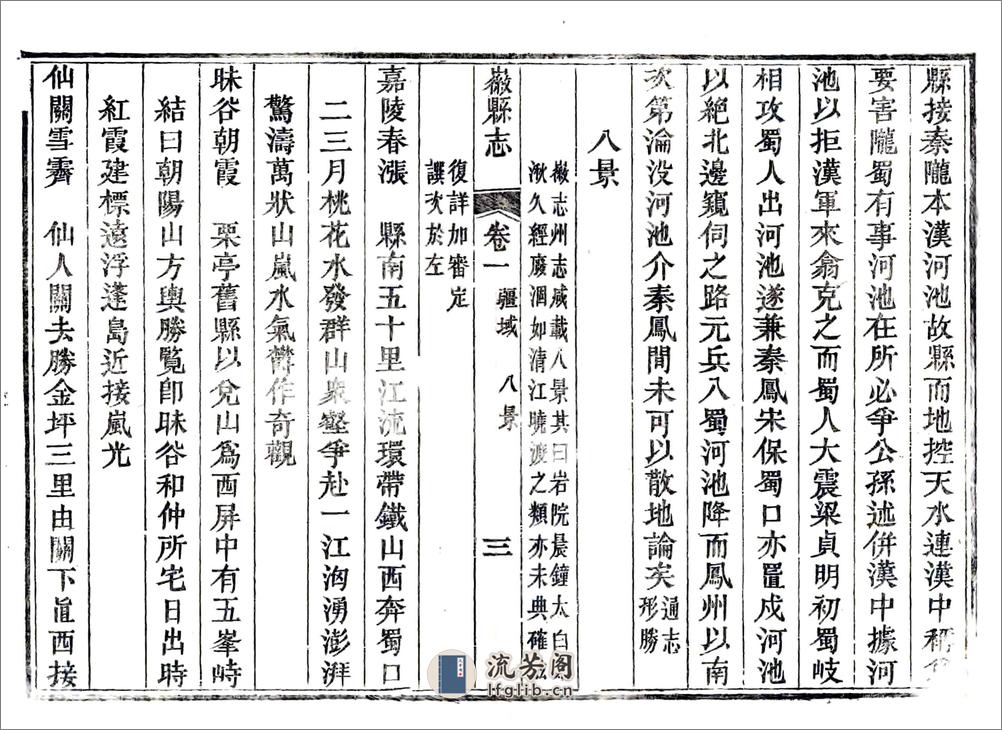 縣接秦隴本漢河池故縣而地控天水連漢中稱
要害隴蜀有事河池在所必爭公孫述併漢中據河
池以拒漢軍來翕克之而蜀人大震梁貞明初蜀岐
相攻蜀人出河池遂兼秦鳳宋保蜀口亦置戍河池
以絕北邊窺伺之路元兵入蜀河池降而鳳州以南
次第淪没河池介秦鳳間未可以散地論矣通志
形勝
八景
徽志州志咸載八景其曰岩院晨鐘太白
湫久經廢涸如清江曉渡之類亦未典確
徽縣志 卷一 疆域 八景 三
復詳加審定
譔次於左
嘉陵春漲 縣南五十里江流環帶鐵山西奔蜀口
二三月桃花水發群山衆壑爭赴一江洶湧澎湃
驚濤萬狀山嵐水氣欝作奇觀
昧谷朝霞 栗亭舊縣以兌山爲西屏中有五峯峙
結曰朝陽山方輿勝覽卽昧谷和仲所宅日出時
紅霞建標遠浮蓬島近接嵐光
仙關雪霽 仙人關去勝金坪三里由關下眞西接
流芳阁
lfglib.cn